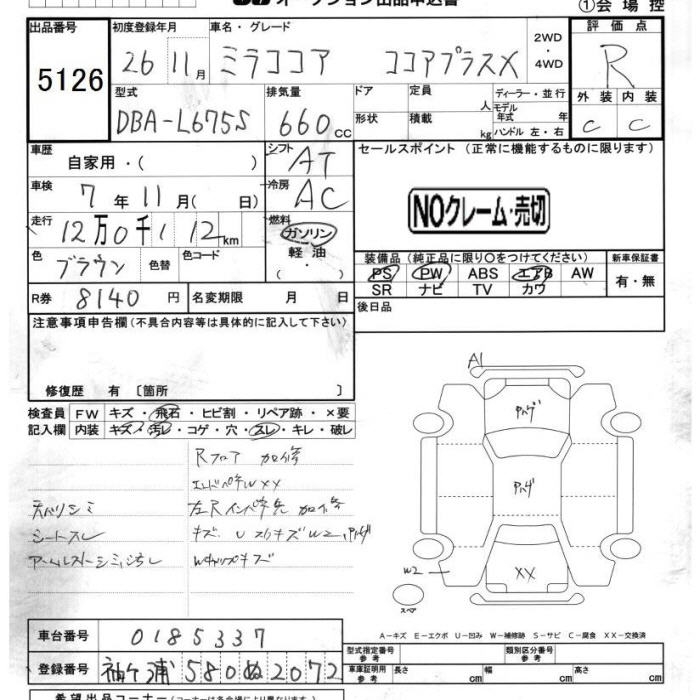 オークション出品申込書
①会場控
出品番号 初度登録年月 車名・グレード 2WD・4WD 評価点
5126 26 11月 ミラココア ココアプラスX R
型式 排気量 ドア 定員 人 ディーラー・並行 外装 内装
DBA-L675S 660cc 形状 積載 kg モデル年式 年 ハンドル 左・右 C C
車歴 自家用・( ) シフト AT セールスポイント (正常に機能するものに限ります)
車検 7年11月( 日) 冷房 AC
NOクレーム・売切
走行 12万0千112km 燃料 ガソリン・軽油・( )
色 ブラウン 色替 色コード
装備品 (純正品に限り○をつけてください) 新車保証書
PS PW ABS エアB AW 有・無
SR ナビ TV カワ
R券 8140円 名変期限 月 日 後日品
注意事項申告欄(不具合内容等は具体的に記入して下さい)
修復歴 有 〔箇所 〕
検査員 FW キズ・飛石・ヒビ割・リペア跡・×要
記入欄 内装 キズ・汚レ・コゲ・穴・スレ・キレ・破レ
Rフロア 加修
エンドパネWXX
天バリシミ 左Rインパネ先 加修
シートスレ キズ. U スリキズ W2.
アームレストシミ
A1
XX
W2
スペア
A-キズ E-エクボ U-凹み W-補修跡 S-サビ C-腐食 XX-交換済
車台番号 0185337
型式指定番号 参考 類別区分番号 参考
登録番号 袖ケ浦 580 ぬ 2072
車庫証明用 参考 長さ cm 幅 cm 高さ cm
希望出品コーナー